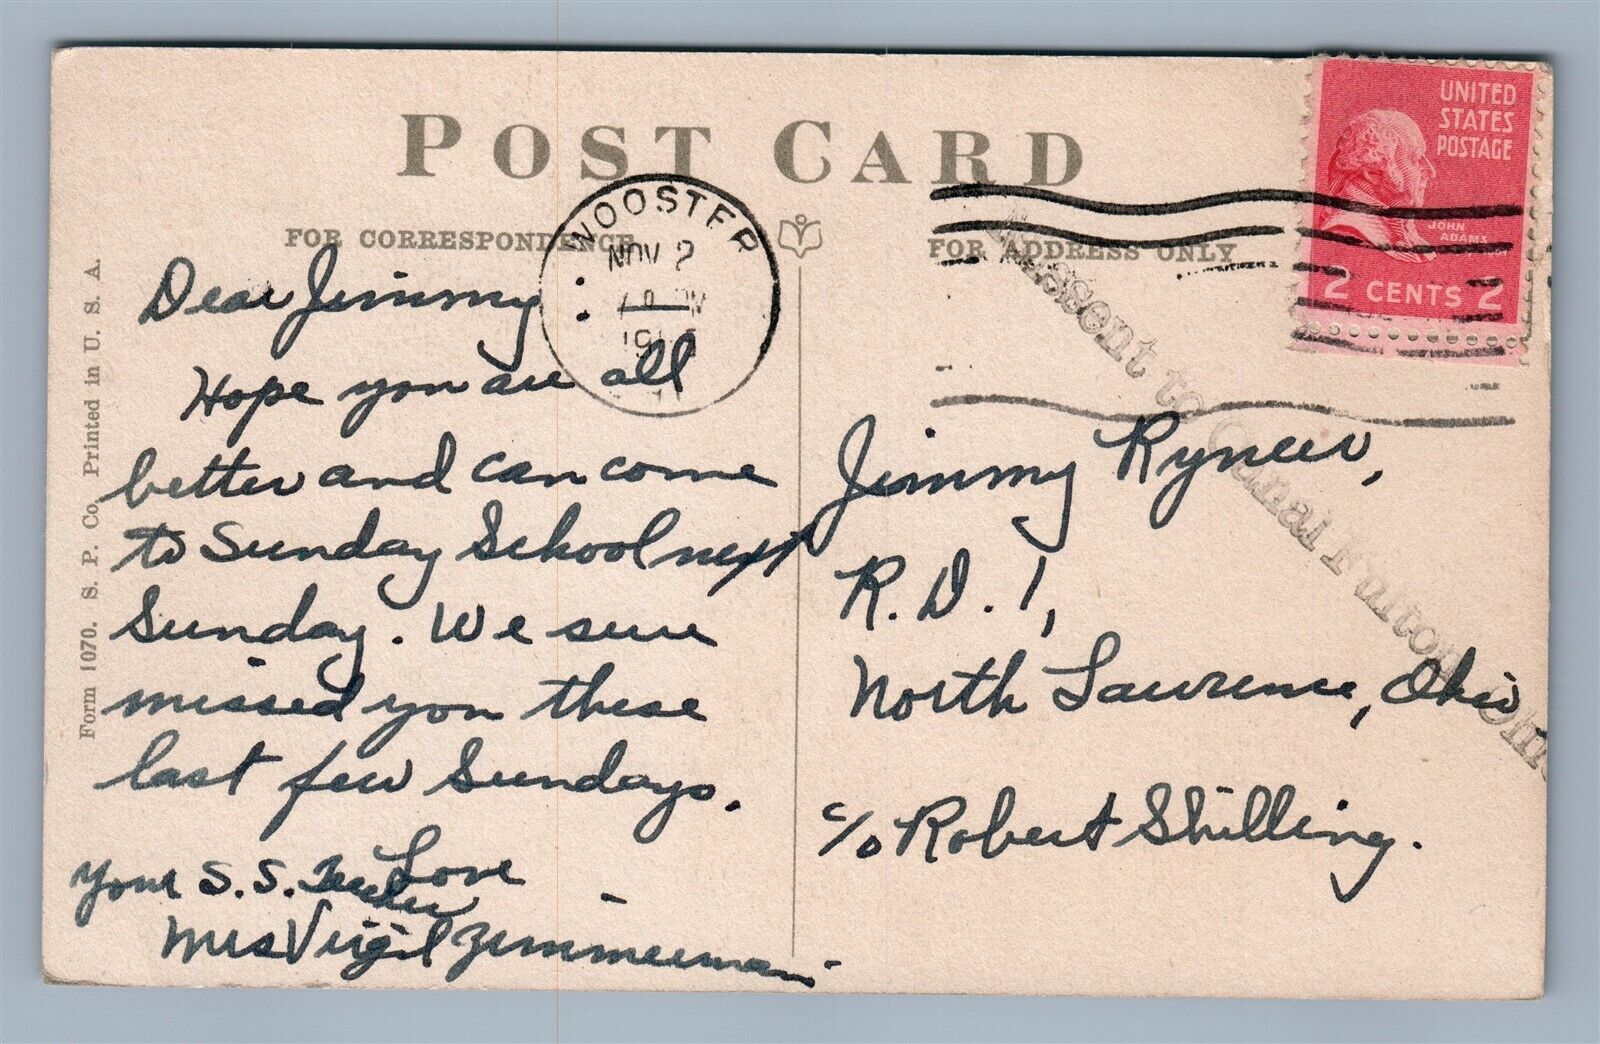 POST CARD
FOR CORRESPONDENCE
FOR ADDRESS ONLY
UNITED
STATES
POSTAGE
JOHN
ADAMS
2 CENTS 2
WOOSTER
NOV 2
Missent to Canal Fulton, Ohio
Form 1070. S. P. Co. Printed in U. S. A.
Dear Jimmy:
Hope you are all
better and can come
to Sunday School next
Sunday. We sure
missed you these
last few Sundays.
Love
Your S.S. Teacher
Mrs Virgil Zimmerman
Jimmy
R.D. 1,
North Lawrence, Ohio
c/o Robert Shilling.